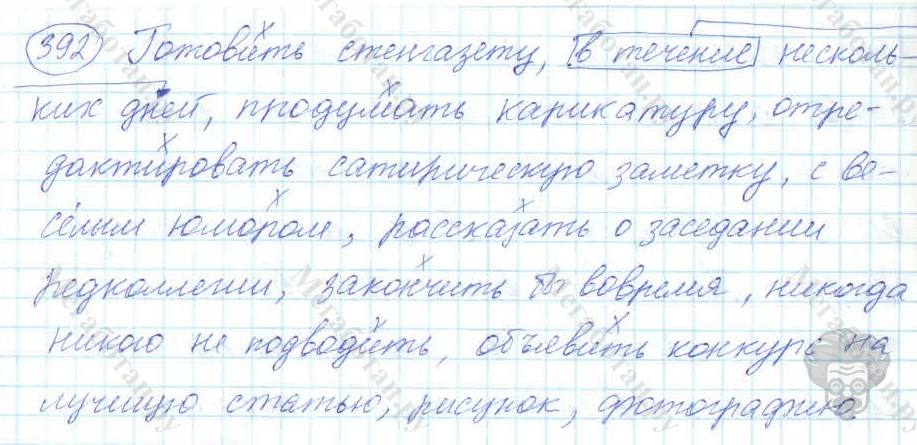 392 Готовить стенгазету, в течение несколь-
ких дней, продумать карикатуру, отре-
дактировать сатирическую заметку, с ве-
сёлым юмором, рассказать о заседании
редколлегии, закончить бы вовремя, никогда
никого не подводить, объявить конкурс на
лучшую статью, рисунок, фотографию.